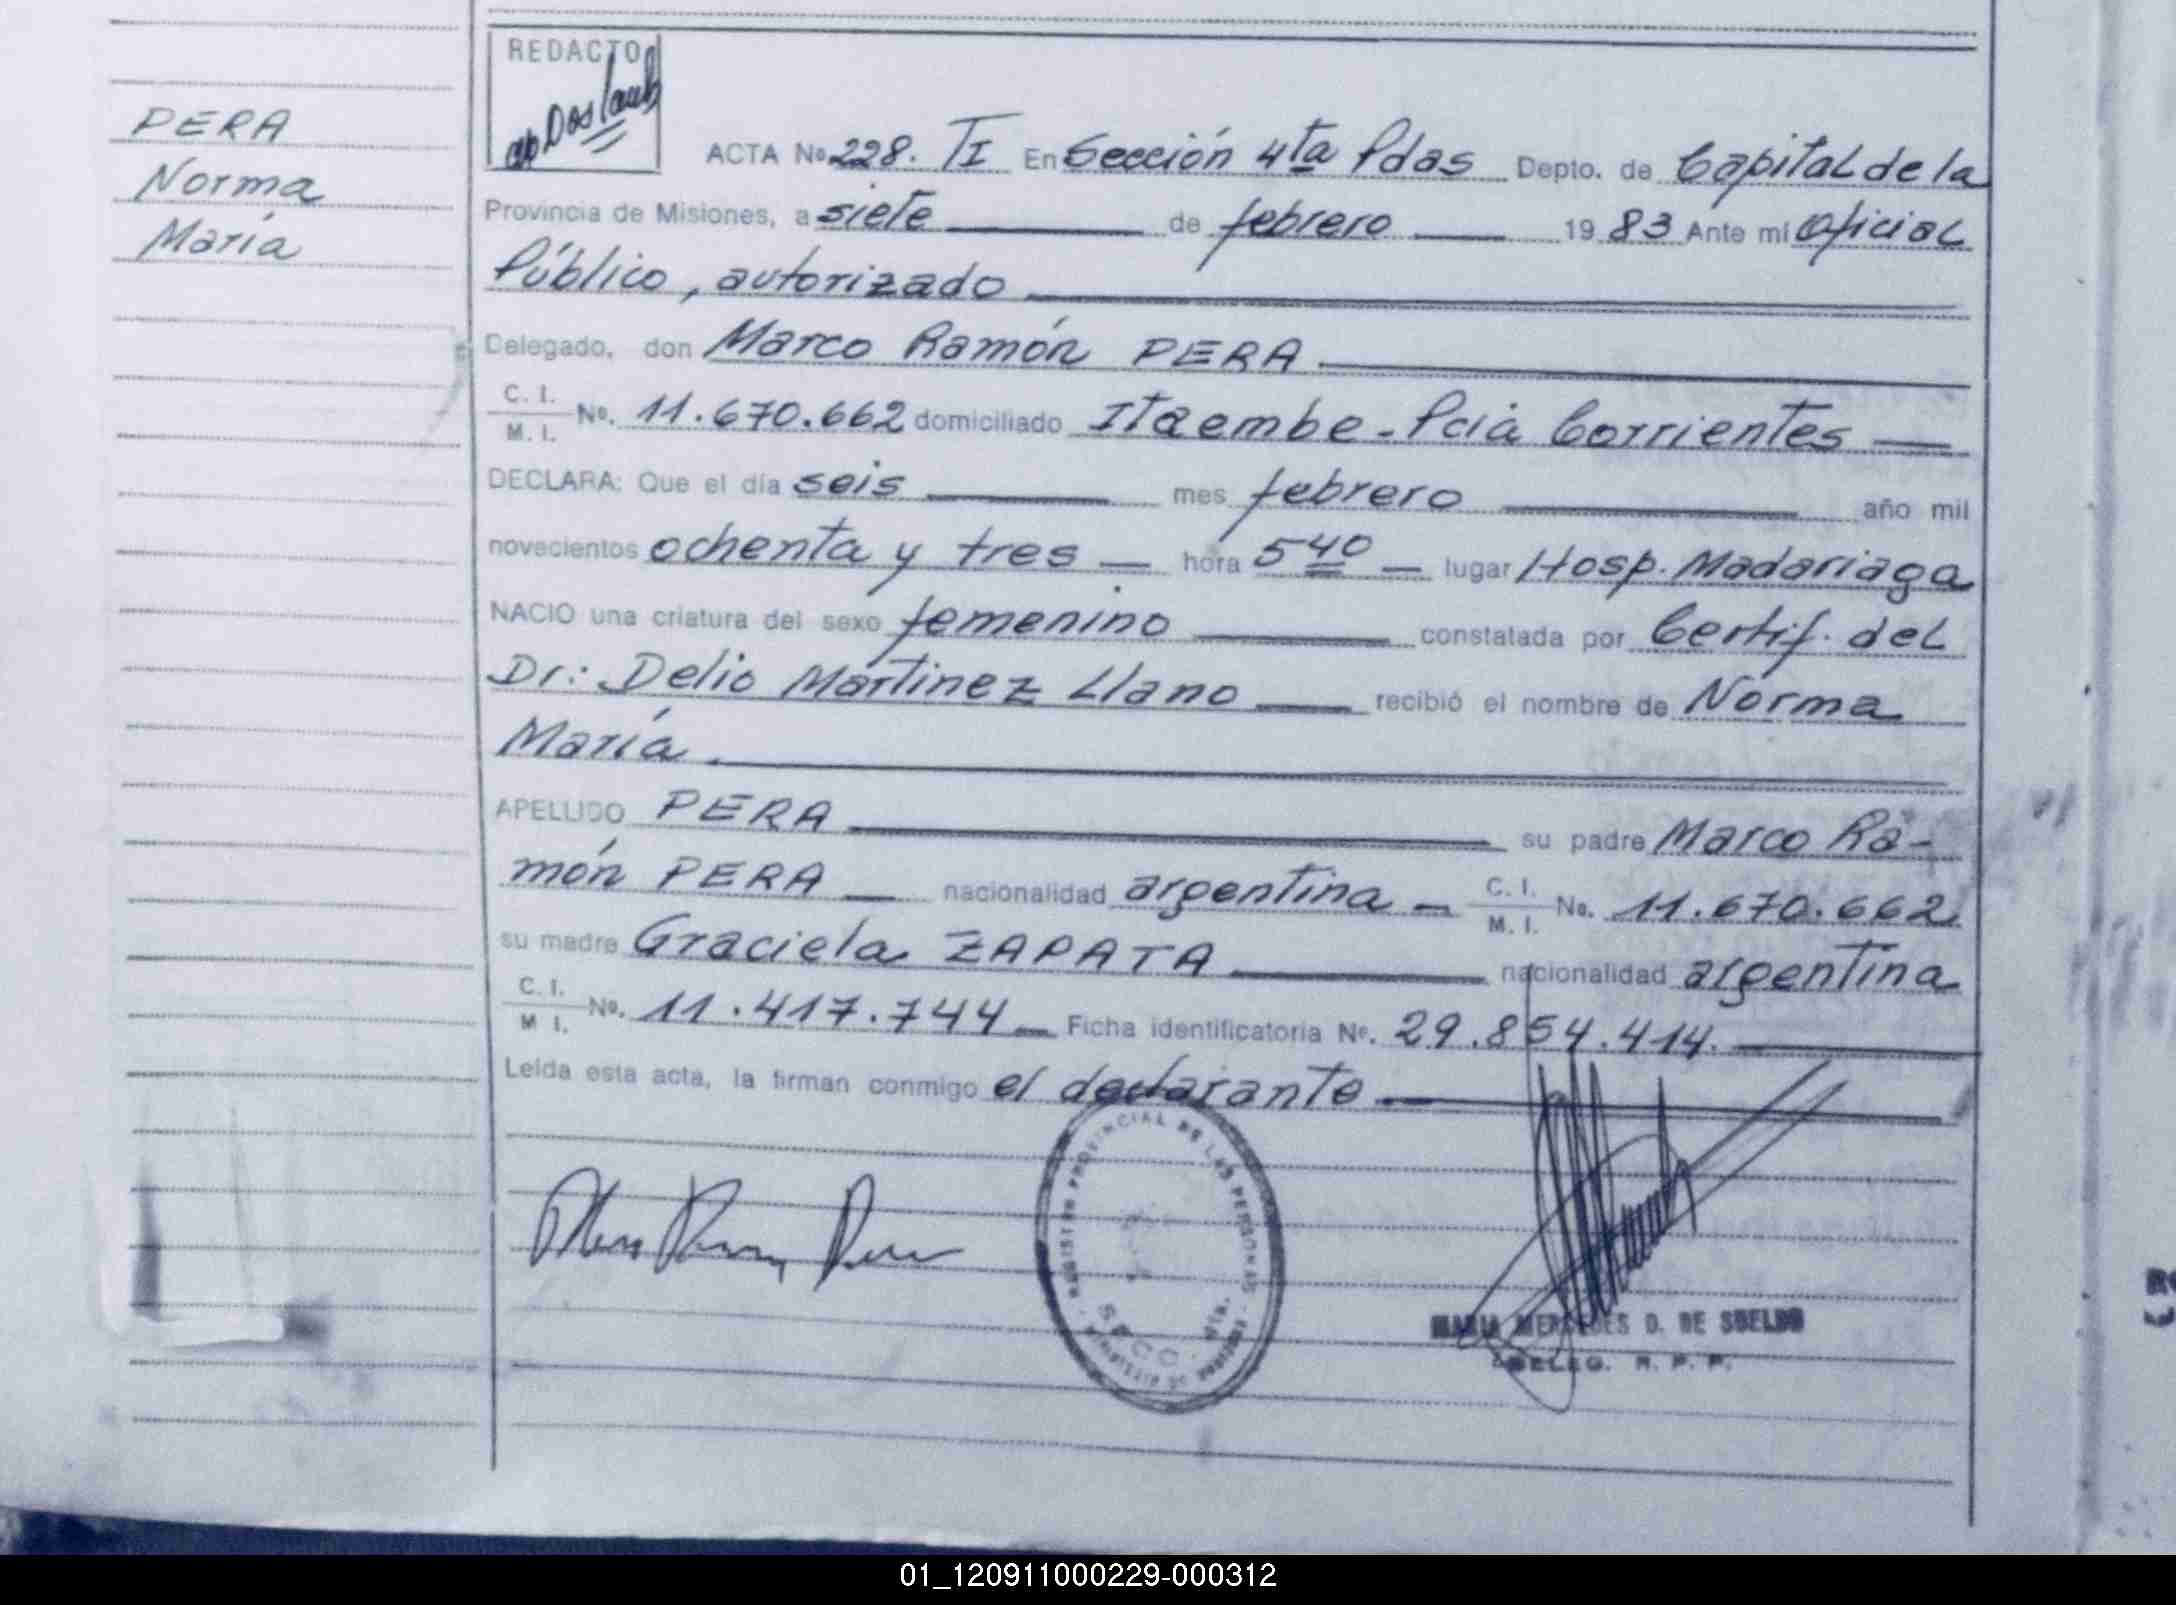 REDACTO
PERA
Norma
María
ACTA Nº 228. TI En Sección 4ta Pdas Depto. de Capital de la
Provincia de Misiones, a siete de febrero 1983 Ante mí Oficial
Público, autorizado
Delegado, don Marco Ramón PERA
C. I.
M. I. Nº. 11.670.662 domiciliado Itaembe - Pcia Corrientes
DECLARA: Que el día seis mes febrero año mil
novecientos ochenta y tres hora 5 40 lugar Hosp. Madariaga
NACIO una criatura del sexo femenino constatada por Certif. del
Dr: Delio Martinez Llano recibió el nombre de Norma
María.
APELLIDO PERA su padre Marco Ra-
món PERA nacionalidad argentina C. I.
M. I. No. 11.670.662
su madre Graciela ZAPATA nacionalidad argentina
C. I.
M. I. Nº. 11.417.744 Ficha identificatoria Nº. 29.854.414.
Leída esta acta, la firman conmigo el declarante
REGISTRO PROVINCIAL DE LAS PERSONAS
SECC. 4ta.
MARIA MERCEDES D. DE SUELDO
DELEG. R. P. P.
01_120911000229-000312